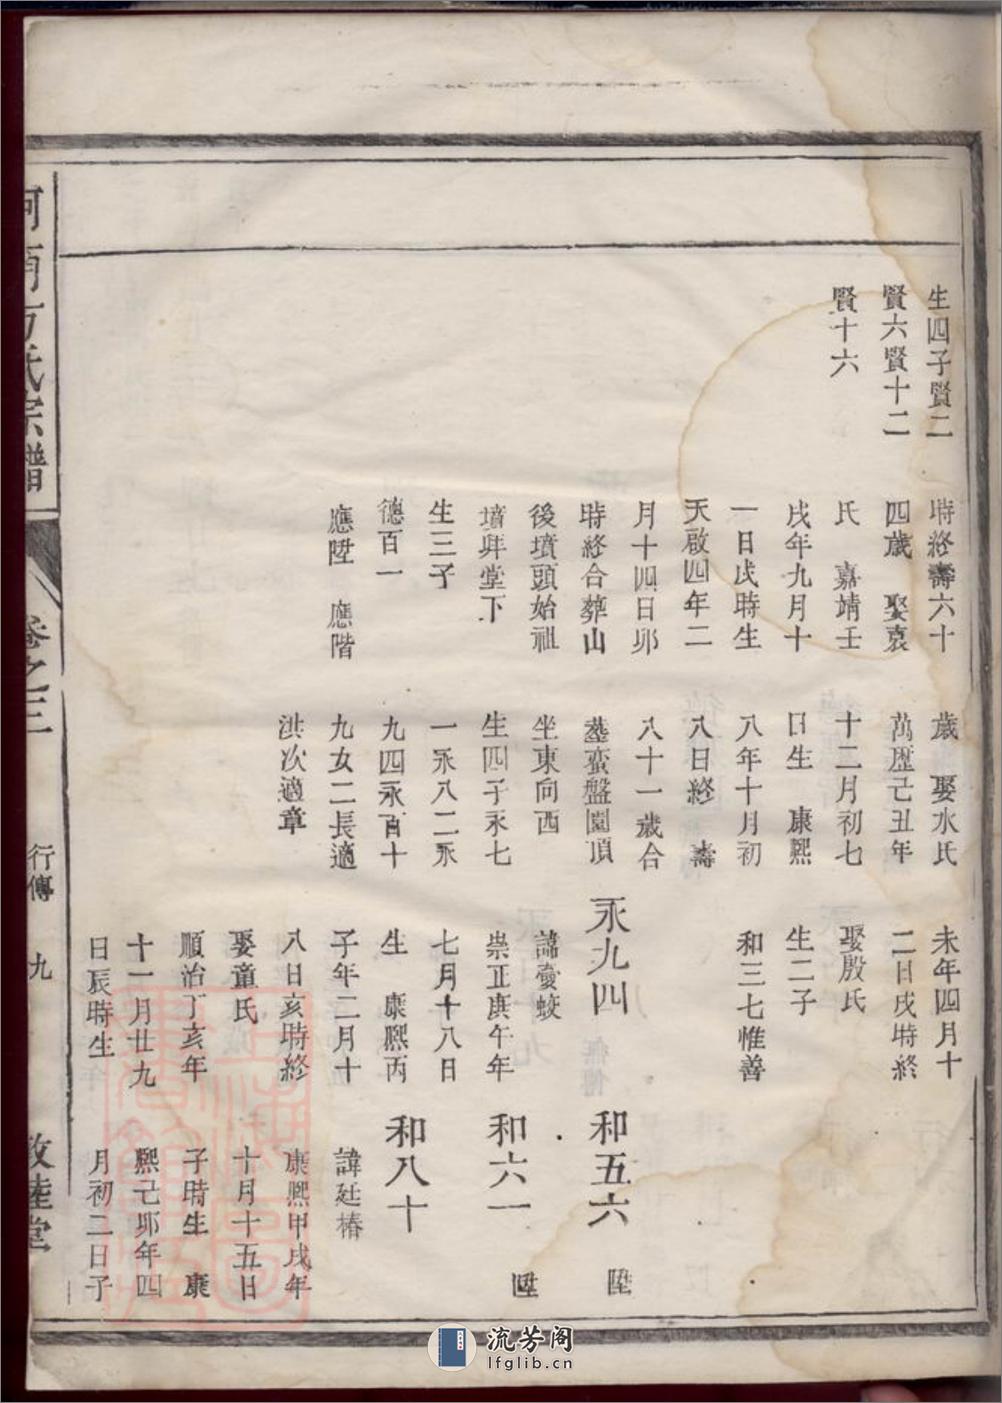 生四子賢二
賢六賢十二
賢十六
時終壽六十
四歲 娶袁
氏 嘉靖壬
戌年九月十
一日戌時生
天啟四年二
月十四日卯
時終合葬山
後墳頭始祖
墳拜堂下
生三子
德百一
應陞 應階
歲 娶水氏
萬歷己丑年
十二月初七
日生 康熙
八年十月初
八日終 壽
八十一歲合
塟蛮盤園頂
坐東向西
生四子永七
一永八二永
九四永百十
九女二長適
洪次適章
未年四月十
二日戌時終
娶殷氏
生二子
和三七惟善
永九四
諱夔蛟
崇正庚午年
七月十八日
生 康熙丙
子年二月十
八日亥時終
娶童氏
順治丁亥年
十一月廿九
日辰時生
和五六 陞
和六一 陞
和八十
諱廷椿
康熙甲戌年
十月十五日
子時生 康
熙己卯年四
月初二日子
河南方氏宗譜
卷之三
行傳 九
敦睦堂
流芳阁
lfglib.cn